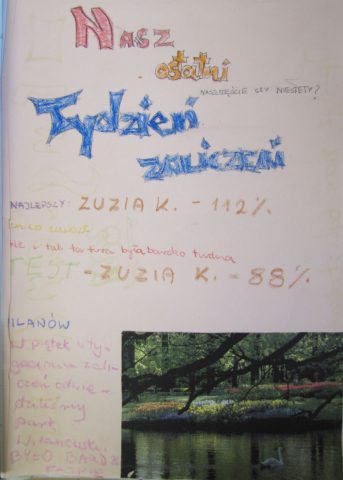 NASZ
ostatni
NASZCZĘŚCIE CZY NIESTETY?
Tydzień
zaliczeń
NAJLEPSZY: ZUZIA K. - 112%
ale i tak tortura była bardzo trudna
TEST - ZUZIA K. = 88%
WILANÓW
W piątek w ty-
godniu zali-
czeń odwie-
dziliśmy
park
Wilanowski.
BYŁO BARDZO
FAJNIE